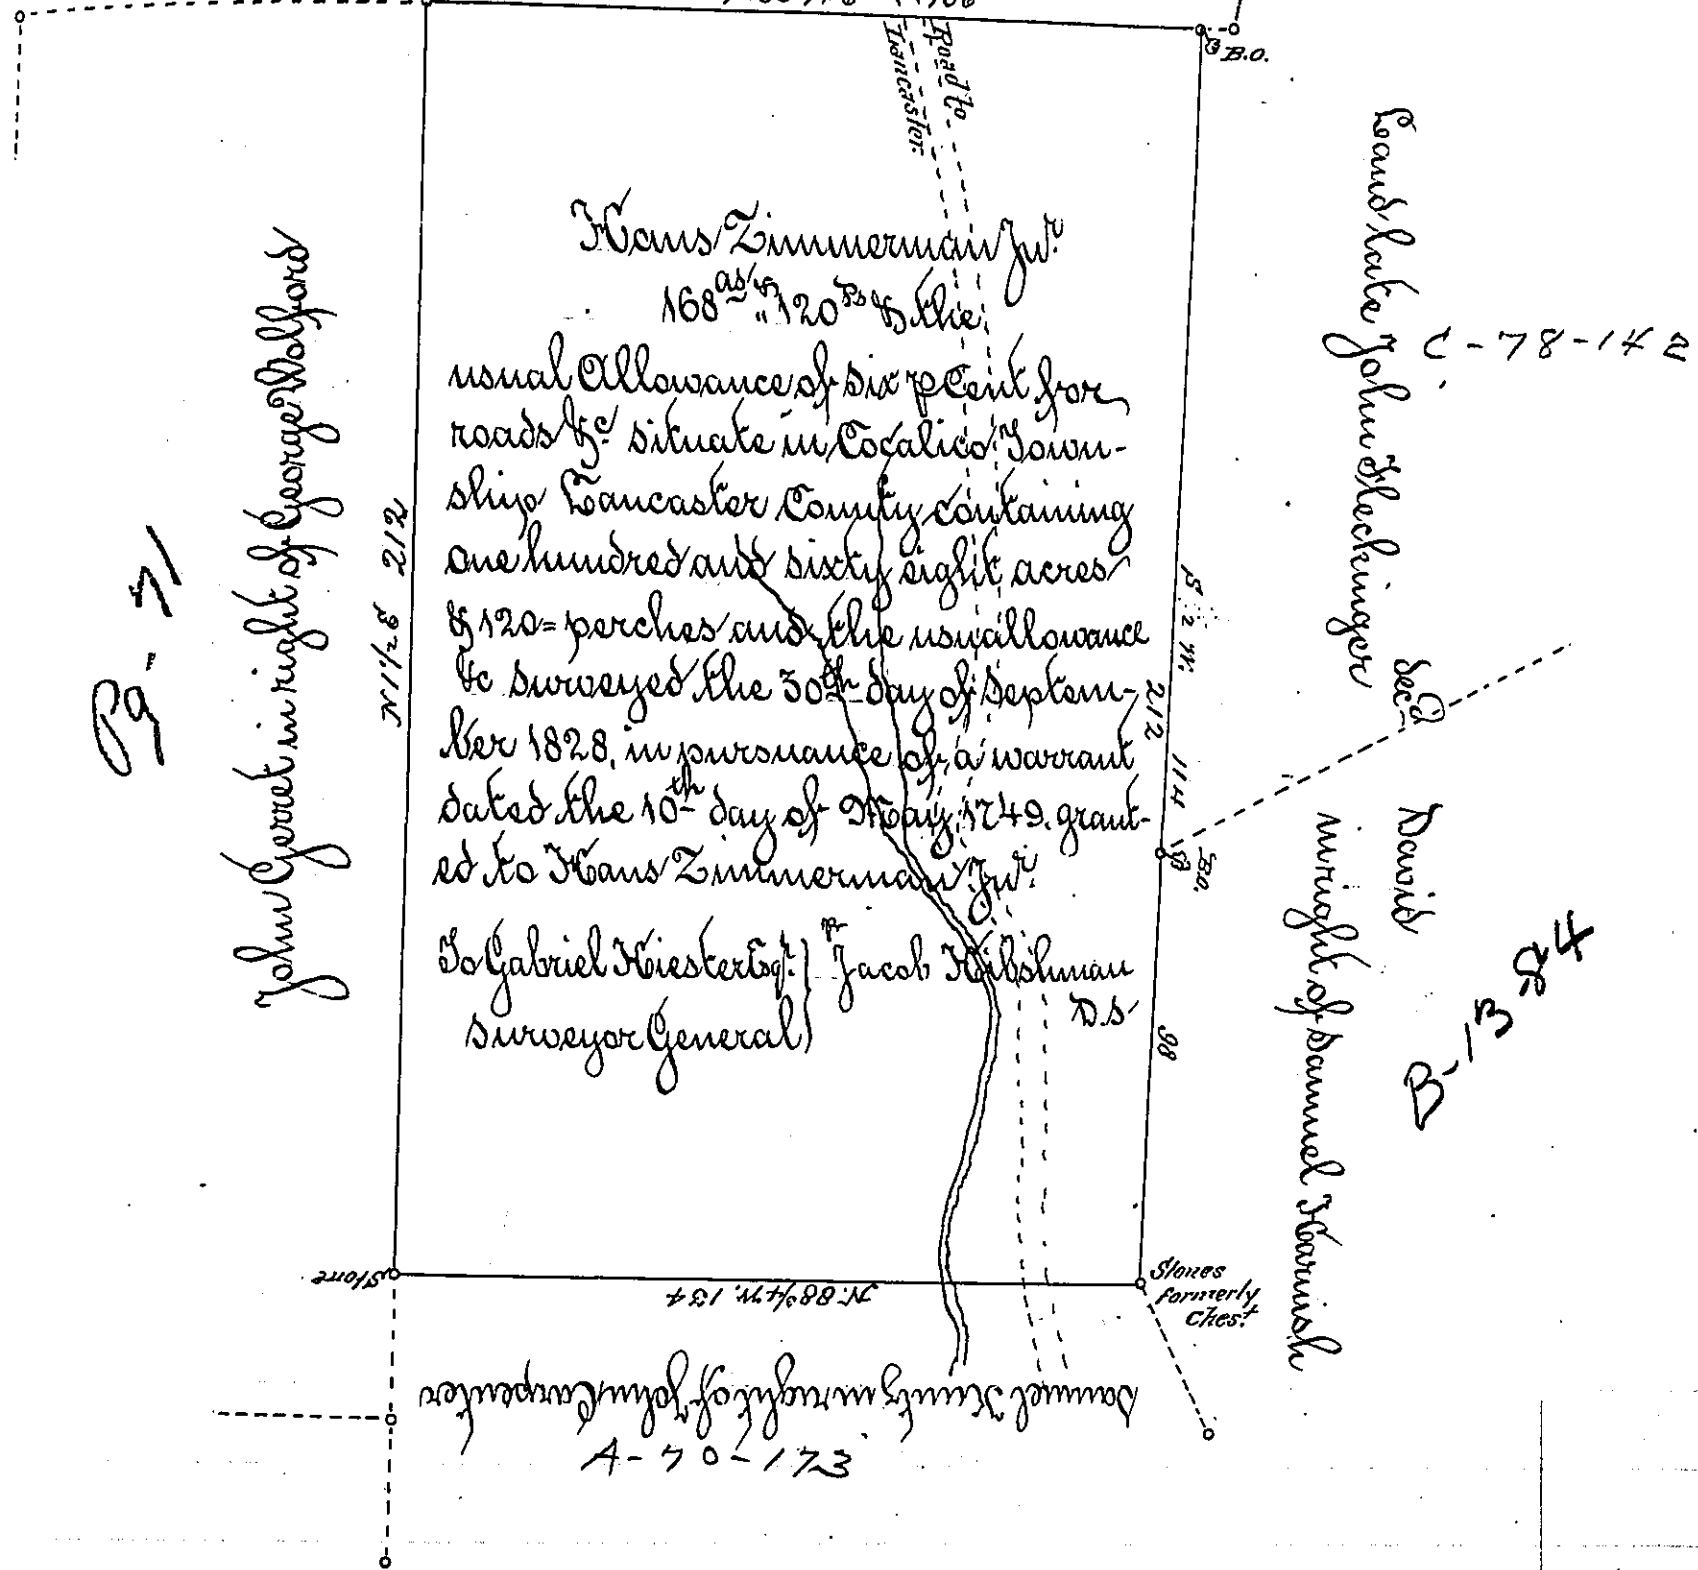 B.O.
Road to
Lancaster
Hans Zimmerman Junr.
168 as & 120 ps & the
usual Allowance of six p Cent for
roads &c. situate in Cocalico Town-
ship Lancaster County containing
one hundred and sixty eight acres
& 120 = perches and the usuallowance
&c surveyed the 30th day of Septem-
ber 1828, in pursuance of a warrant
dated the 10th day of May, 1749. grant-
ed to Hans Zimmerman Junr.
To Gabriel Hiester Esqr. } pr Jacob Hibshman
Surveyor General } D.S
John Gerret in right of George Wolford
N 1 1/2 E 212
Pg - 71
Land late John Fleckinger Decd
C - 78 - 142
S. 2 W. 212
114
B.O.
98
David
in right of Samuel Harnish
B-13 84
Stone
N. 88 3/4 W. 134
Stones
formerly
Ches.t
Samuel Kuntz in right of John Carpenter
A - 70 - 173